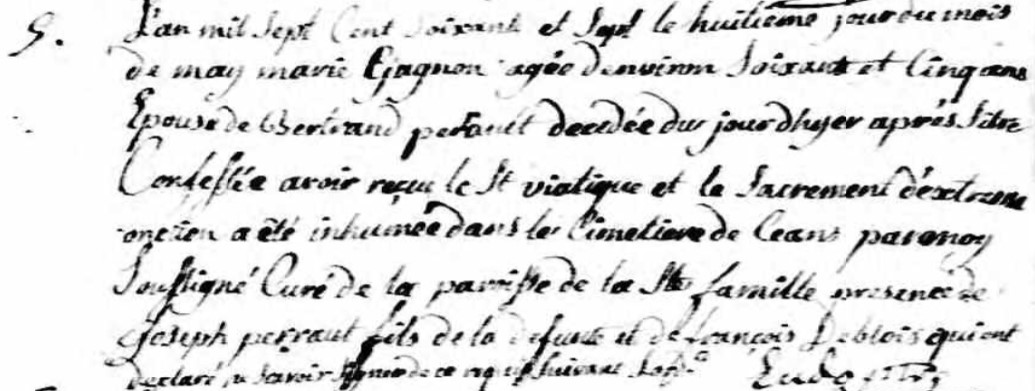 S. L'an mil sept Cent soixante et sept le huitième jour du mois
de may marie Gagnon agée d'environ soixante et Cinq ans
Epouse de Bertrand perrault decedée du jour d'hyer après s'être
Confessée avoir reçu le St viatique et le sacrement d'extreme
onction a été inhumée dans le Cimetiere de Ceans par moy
soussigné Curé de la paroisse de la Ste famille presence de
joseph perraut fils de la defunte et de françois Deblois qui ont
declaré ne scavoir signer de ce requis suivant l'ord.